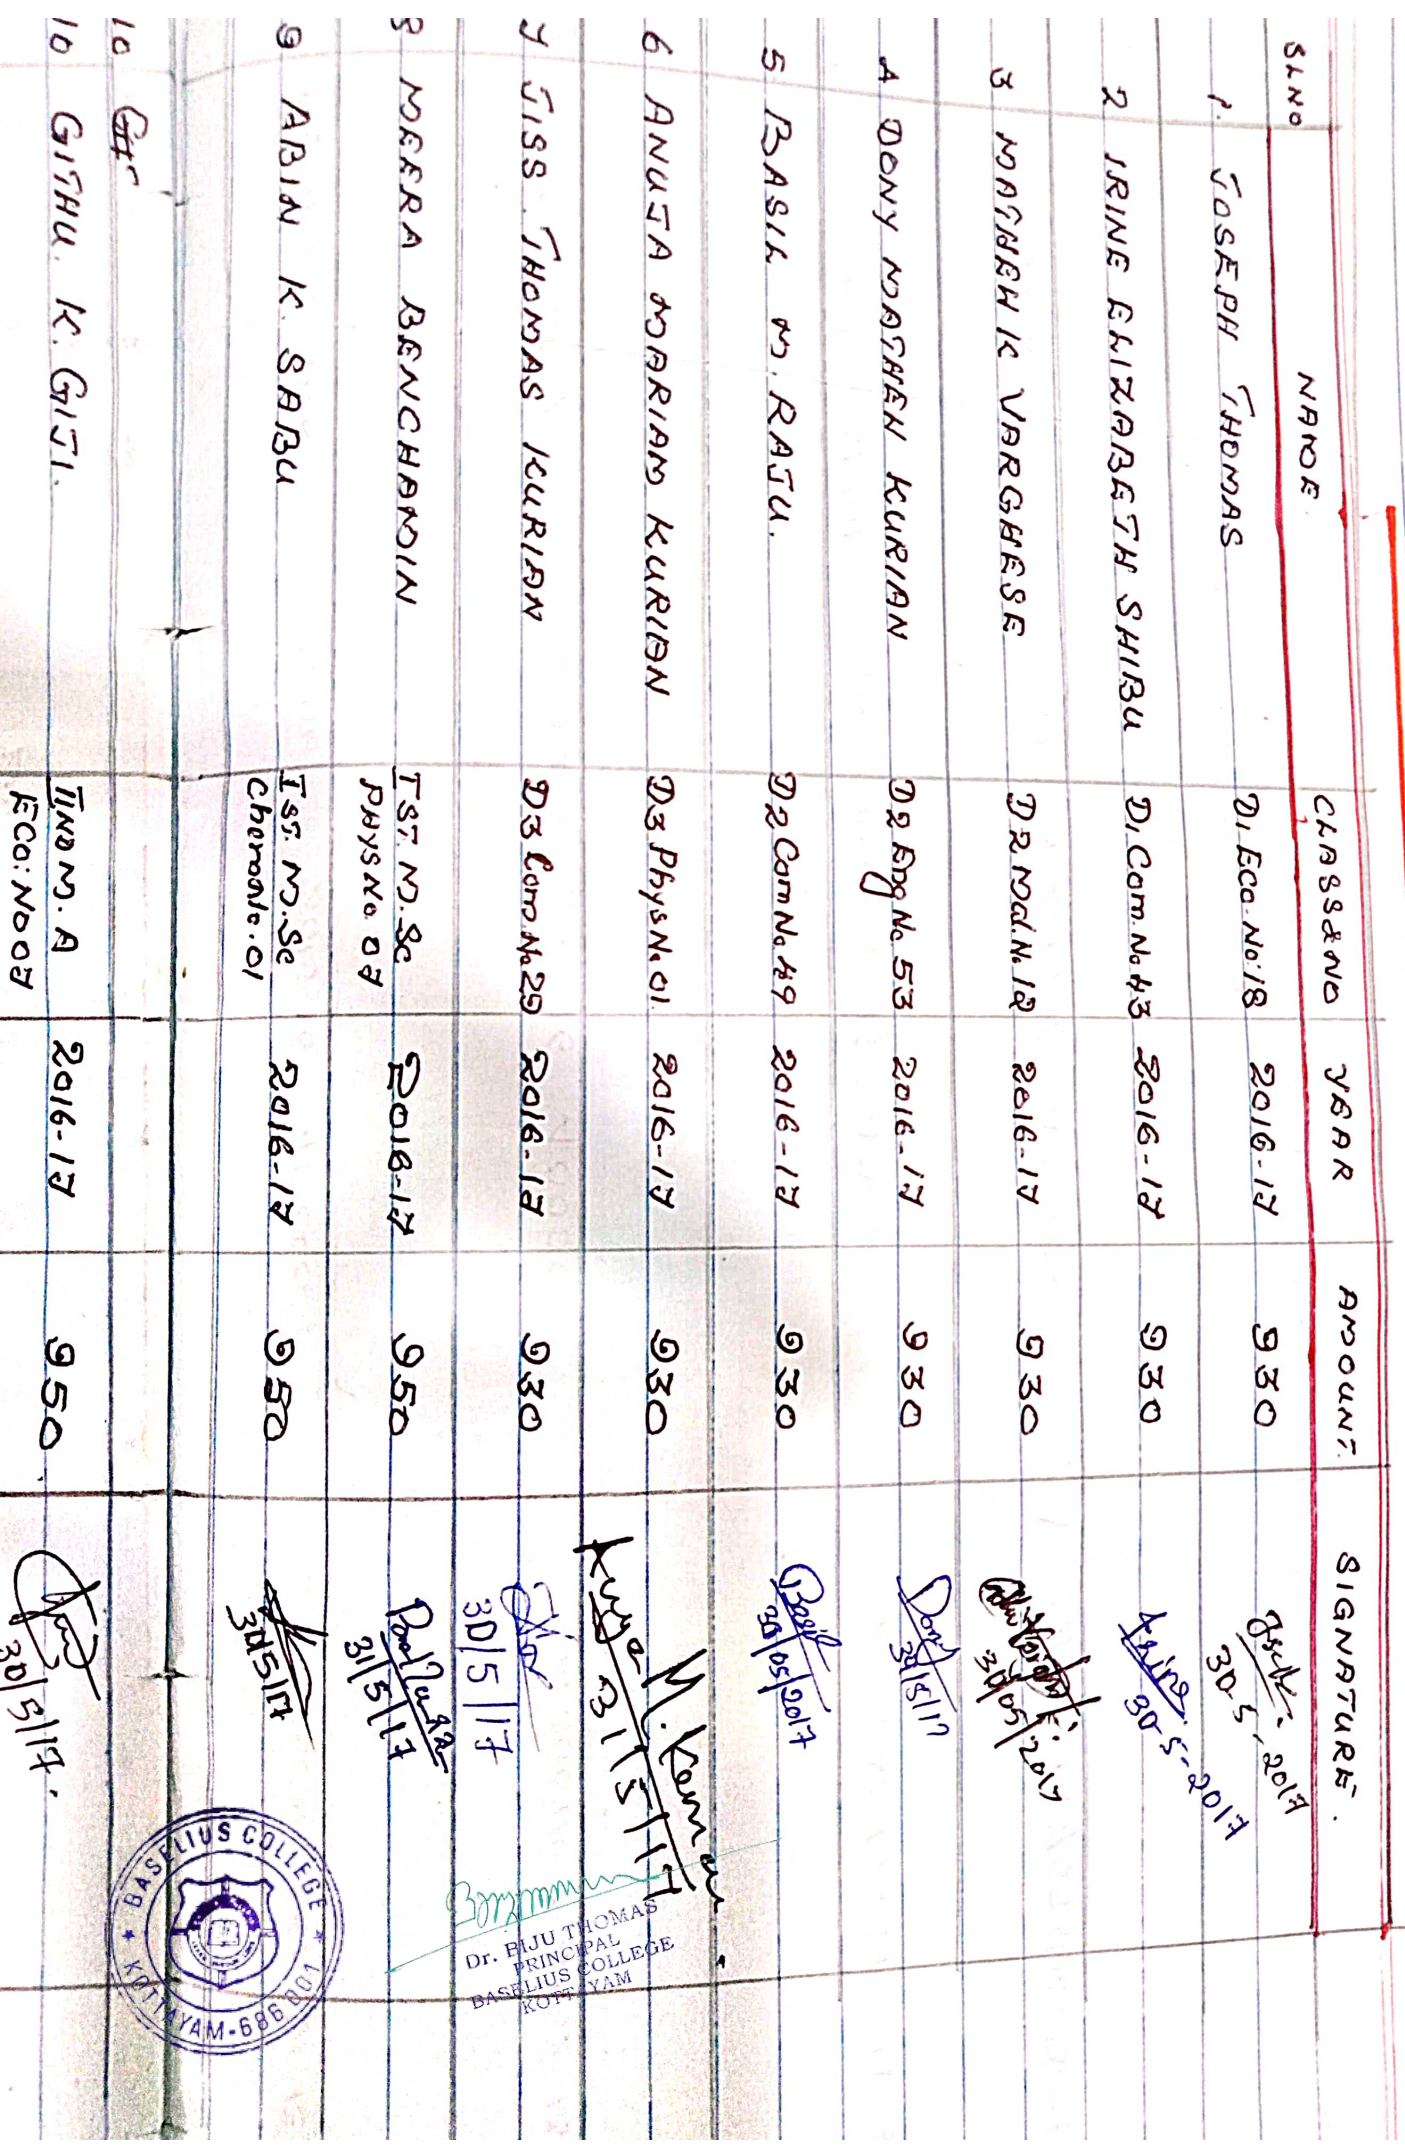 SLNO NAME CLASS&NO YEAR AMOUNT. SIGNATURE.
1. JOSEPH THOMAS D1 Eco. No:18 2016-17 930
30-5-2017
2 IRINE ELIZABETH SHIBU D1 Com. No 43 2016-17 930
30-5-2017
3 MATHEW K VARGHESE D2 Mal. No 12 2016-17 930
30/05/2017
4 DONY MATHEW KURIAN D2 Eng No 53 2016-17 930 Dony
30/5/17
5 BASIL M. RAJU. D2 Com No 49 2016-17 930 Basil
30/05/2017
6 ANUJA MARIAM KURIAN D3 Phys No 01. 2016-17 930 Anuja M. Kurian
31/5/17
7 JISS. THOMAS KURIAN D3 Com. No 29 2016-17 930
30/5/17
8 MEERA BENCHAMIN IST. M.Sc 2016-17 950
PHYS No. 07 31/5/17
9 ABIN K. SABU IST. M.Sc 2016-17 950
Chem No. 01 30/5/17
10 Git
10 GITHU. K. GIJI. IIND M. A 2016-17 950
ECO: NO 07 30/5/17.
Dr. BIJU THOMAS
PRINCIPAL
BASELIUS COLLEGE
KOTTAYAM
BASELIUS COLLEGE
KOTTAYAM-686 001